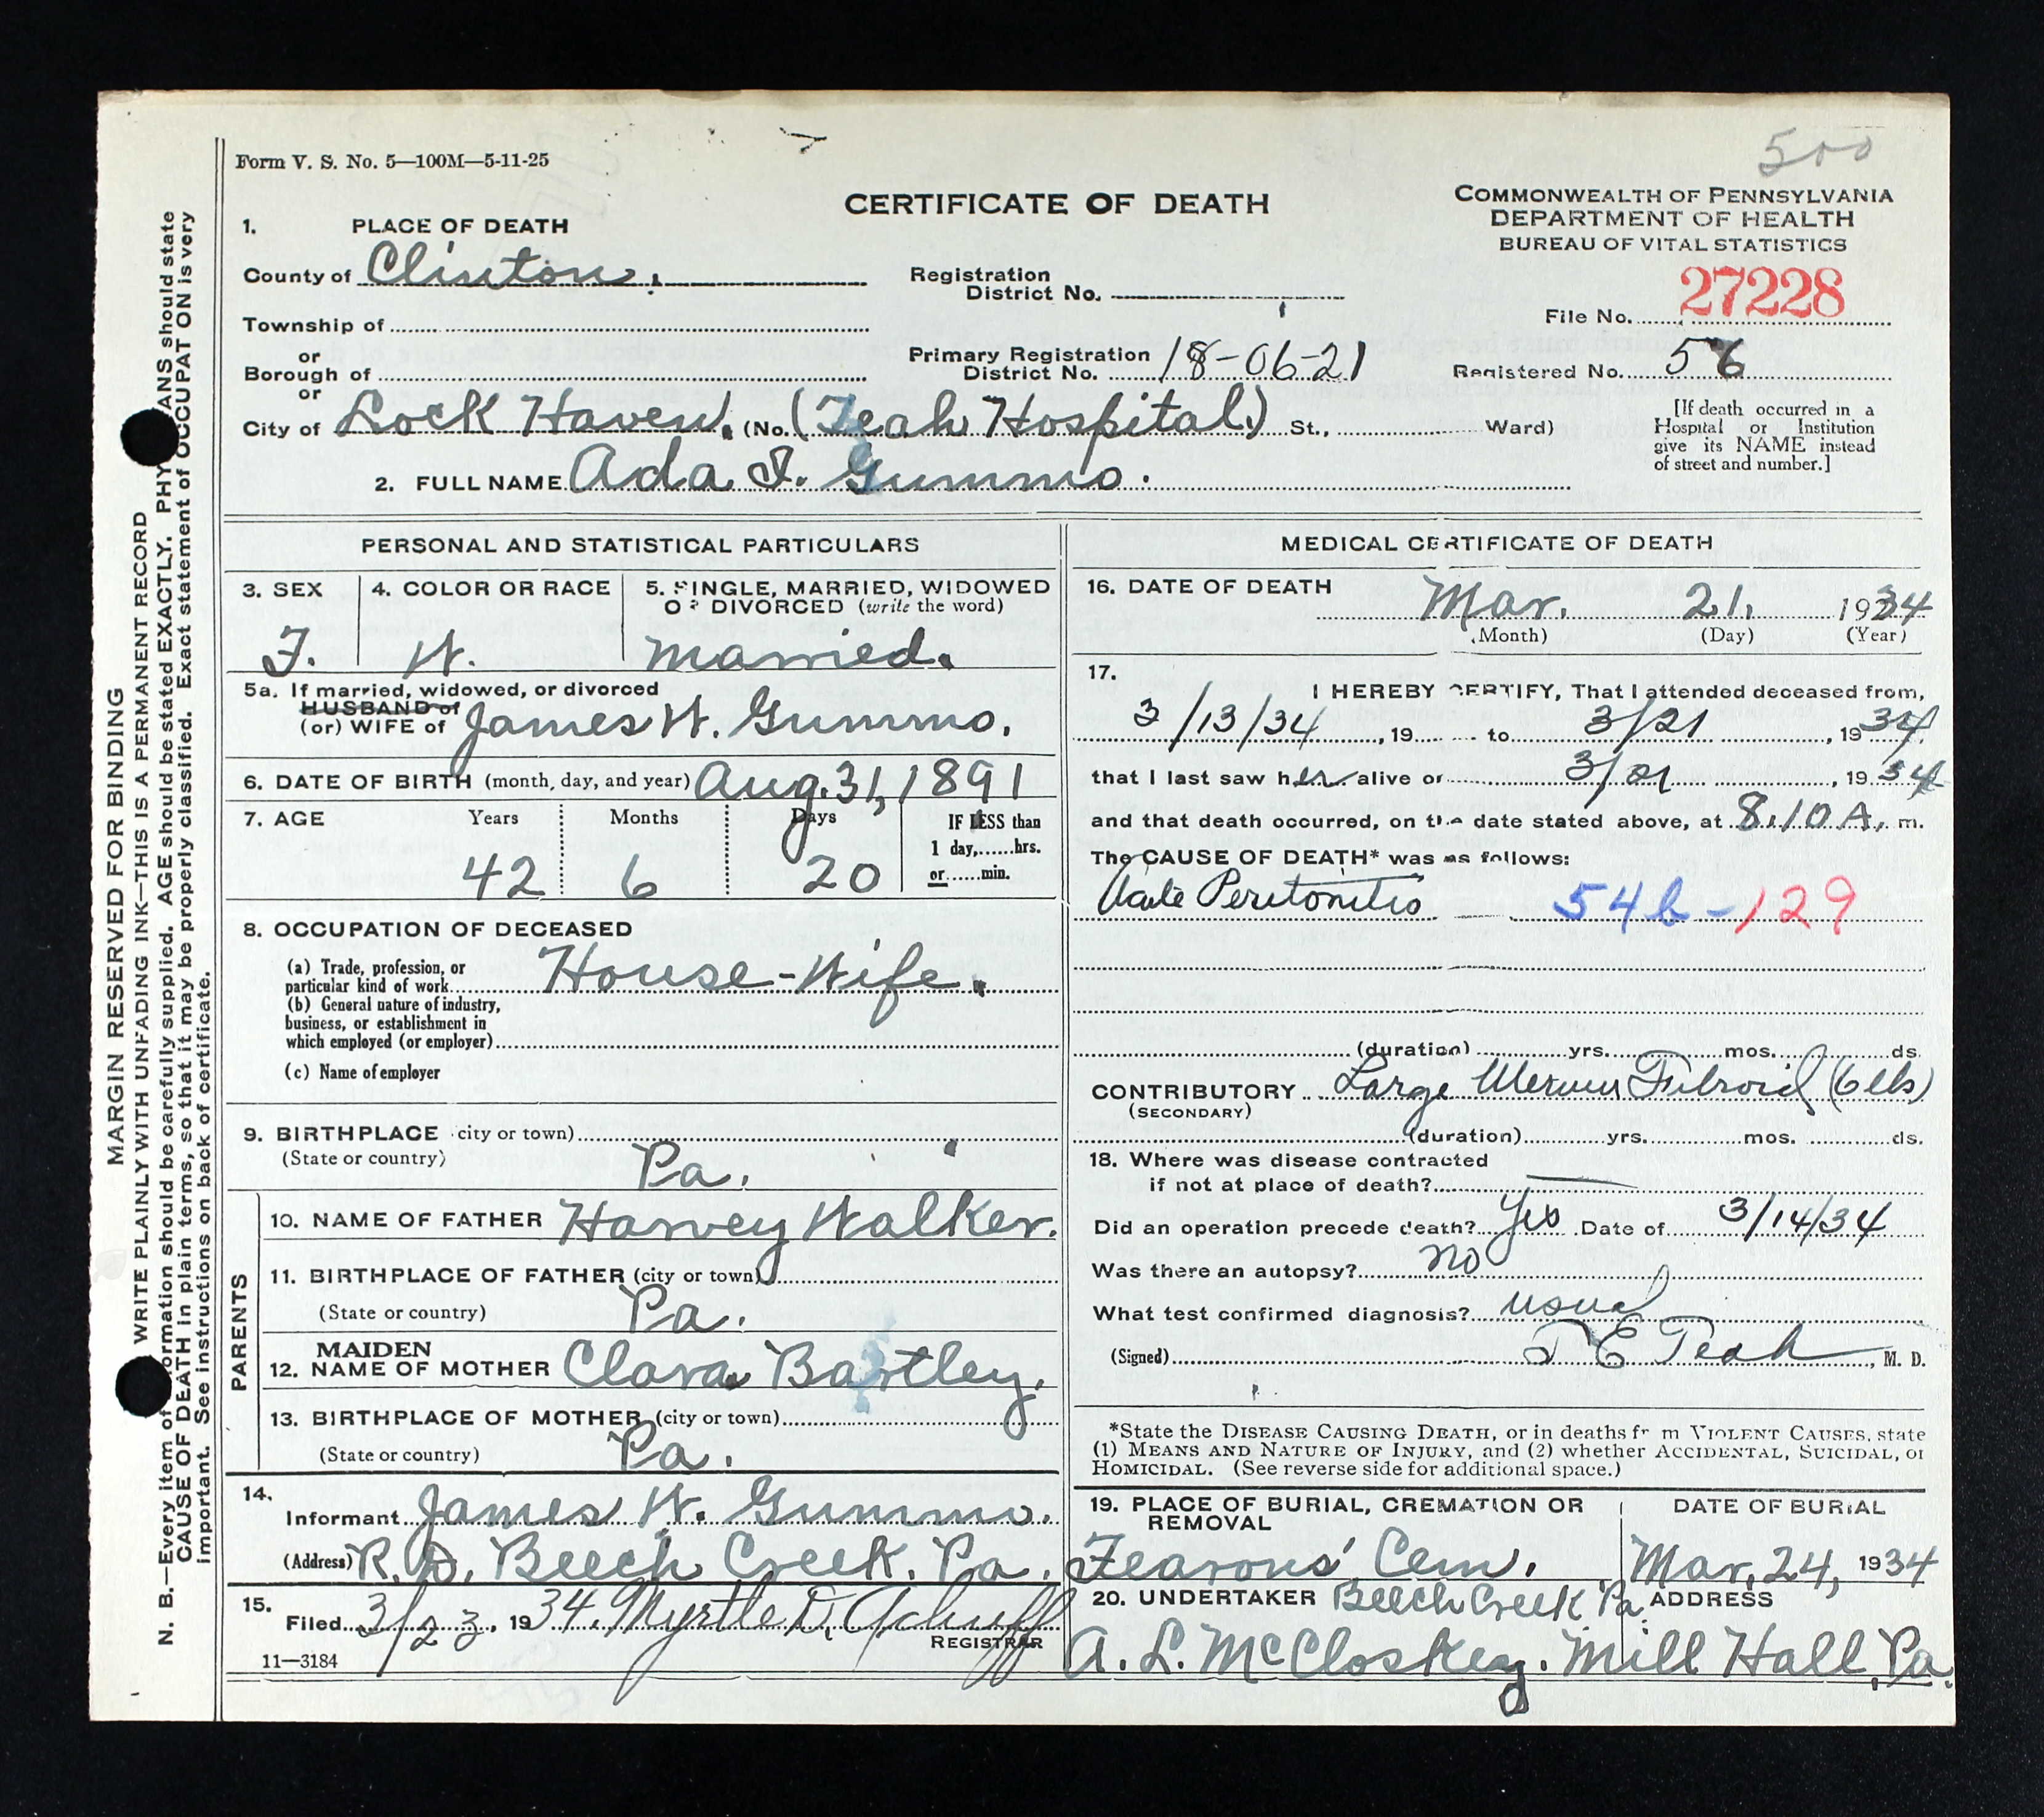 500
Form V. S. No. 5—100M—5-11-25
CERTIFICATE OF DEATH
COMMONWEALTH OF PENNSYLVANIA
DEPARTMENT OF HEALTH
BUREAU OF VITAL STATISTICS
1. PLACE OF DEATH
County of Clinton.
Registration
District No.
File No. 27228
Township of
or
Borough of
or
Primary Registration
District No. 18-06-21
Registered No. 56
City of Lock Haven. (No. (Teah Hospital.) St., Ward)
[If death occurred in a
Hospital or Institution
give its NAME instead
of street and number.]
2. FULL NAME Ada I. Gummo.
PERSONAL AND STATISTICAL PARTICULARS
3. SEX
F.
4. COLOR OR RACE
W.
5. SINGLE, MARRIED, WIDOWED
OR DIVORCED (write the word)
Married.
5a. If married, widowed, or divorced
HUSBAND of
(or) WIFE of James W. Gummo.
6. DATE OF BIRTH (month, day, and year) Aug. 31, 1891
7. AGE Years Months Days IF LESS than
1 day,......hrs.
42 6 20 or......min.
8. OCCUPATION OF DECEASED
(a) Trade, profession, or
particular kind of work House-Wife.
(b) General nature of industry,
business, or establishment in
which employed (or employer)
(c) Name of employer
9. BIRTHPLACE city or town)
(State or country) Pa.
PARENTS
10. NAME OF FATHER Harvey Walker.
11. BIRTHPLACE OF FATHER (city or town)
(State or country) Pa.
MAIDEN
12. NAME OF MOTHER Clara Bartley.
13. BIRTHPLACE OF MOTHER (city or town)
(State or country) Pa.
14.
Informant James W. Gummo.
(Address) R.D. Beech Creek. Pa.
15.
Filed 3/23, 1934. Myrtle D. Achuff
REGISTRAR
11—3184
MEDICAL CERTIFICATE OF DEATH
16. DATE OF DEATH Mar. 21. 1934
(Month) (Day) (Year)
17.
I HEREBY CERTIFY, That I attended deceased from,
3/13/34, 19 to 3/21, 1934
that I last saw her alive on 3/21, 1934
and that death occurred, on the date stated above, at 8.10 A. m.
The CAUSE OF DEATH* was as follows:
Acute Peritonitis 54b-129
(duration) yrs. mos. ds.
CONTRIBUTORY Large Uterine Fibroid (6 lbs)
(SECONDARY)
(duration) yrs. mos. ds.
18. Where was disease contracted
if not at place of death?
Did an operation precede death? Yes Date of 3/14/34
Was there an autopsy? no
What test confirmed diagnosis? usual
(Signed) T E Teah, M. D.
*State the DISEASE CAUSING DEATH, or in deaths fr m VIOLENT CAUSES, state
(1) MEANS AND NATURE OF INJURY, and (2) whether ACCIDENTAL, SUICIDAL, or
HOMICIDAL. (See reverse side for additional space.)
19. PLACE OF BURIAL, CREMATION OR
REMOVAL
Fearons' Cem.
DATE OF BURIAL
Mar. 24, 1934
20. UNDERTAKER Beech Creek Pa. ADDRESS
A. L. McCloskey. Mill Hall, Pa.
MARGIN RESERVED FOR BINDING
WRITE PLAINLY WITH UNFADING INK—THIS IS A PERMANENT RECORD
N. B.—Every item of ormation should be carefully supplied. AGE should be stated EXACTLY. PHY ANS should state
CAUSE OF DEATH in plain terms, so that it may be properly classified. Exact statement of OCCUPAT ON is very
important. See instructions on back of certificate.